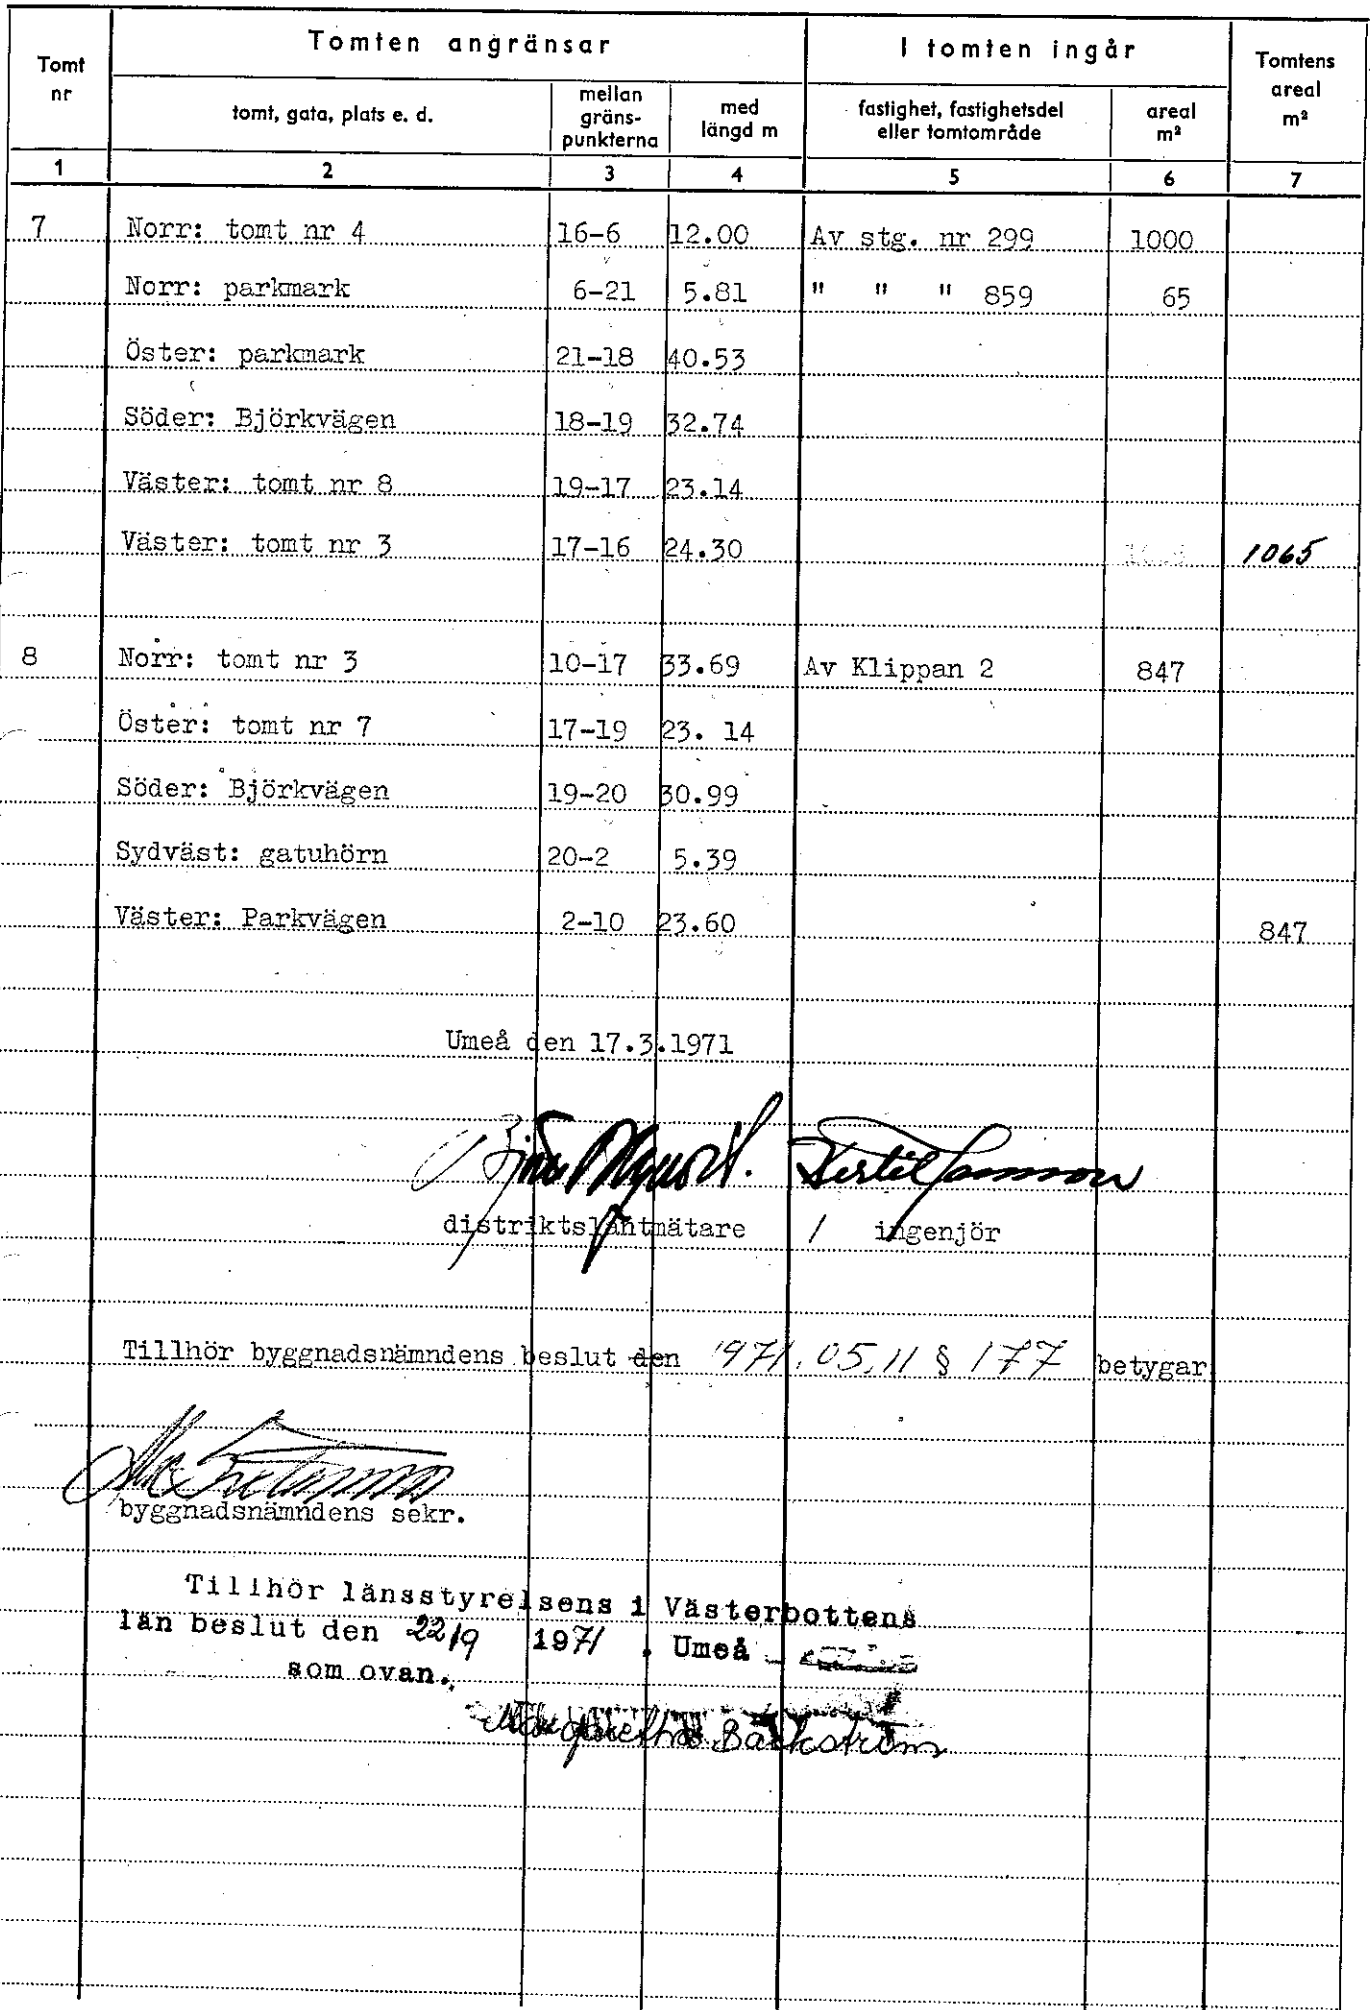 Tomt nr
Tomten angränsar
I tomten ingår
Tomtens areal m²
tomt, gata, plats e. d.
mellan gräns- punkterna
med längd m
fastighet, fastighetsdel eller tomtområde
areal m²
1 2 3 4 5 6 7
7 Norr: tomt nr 4 16-6 12.00 Av stg. nr 299 1000
Norr: parkmark 6-21 5.81 " " " 859 65
Öster: parkmark 21-18 40.53
Söder: Björkvägen 18-19 32.74
Väster: tomt nr 8 19-17 23.14
Väster: tomt nr 3 17-16 24.30 1065
8 Norr: tomt nr 3 10-17 33.69 Av Klippan 2 847
Öster: tomt nr 7 17-19 23. 14
Söder: Björkvägen 19-20 30.99
Sydväst: gatuhörn 20-2 5.39
Väster: Parkvägen 2-10 23.60 847
Umeå den 17.3.1971
distriktslantmätare / ingenjör
Tillhör byggnadsnämndens beslut den 1971.05.11 § 177 betygar
byggnadsnämndens sekr.
Tillhör länsstyrelsens i Västerbottens
län beslut den 22/9 1971 . Umeå
som ovan.
Margaretha Bäckström